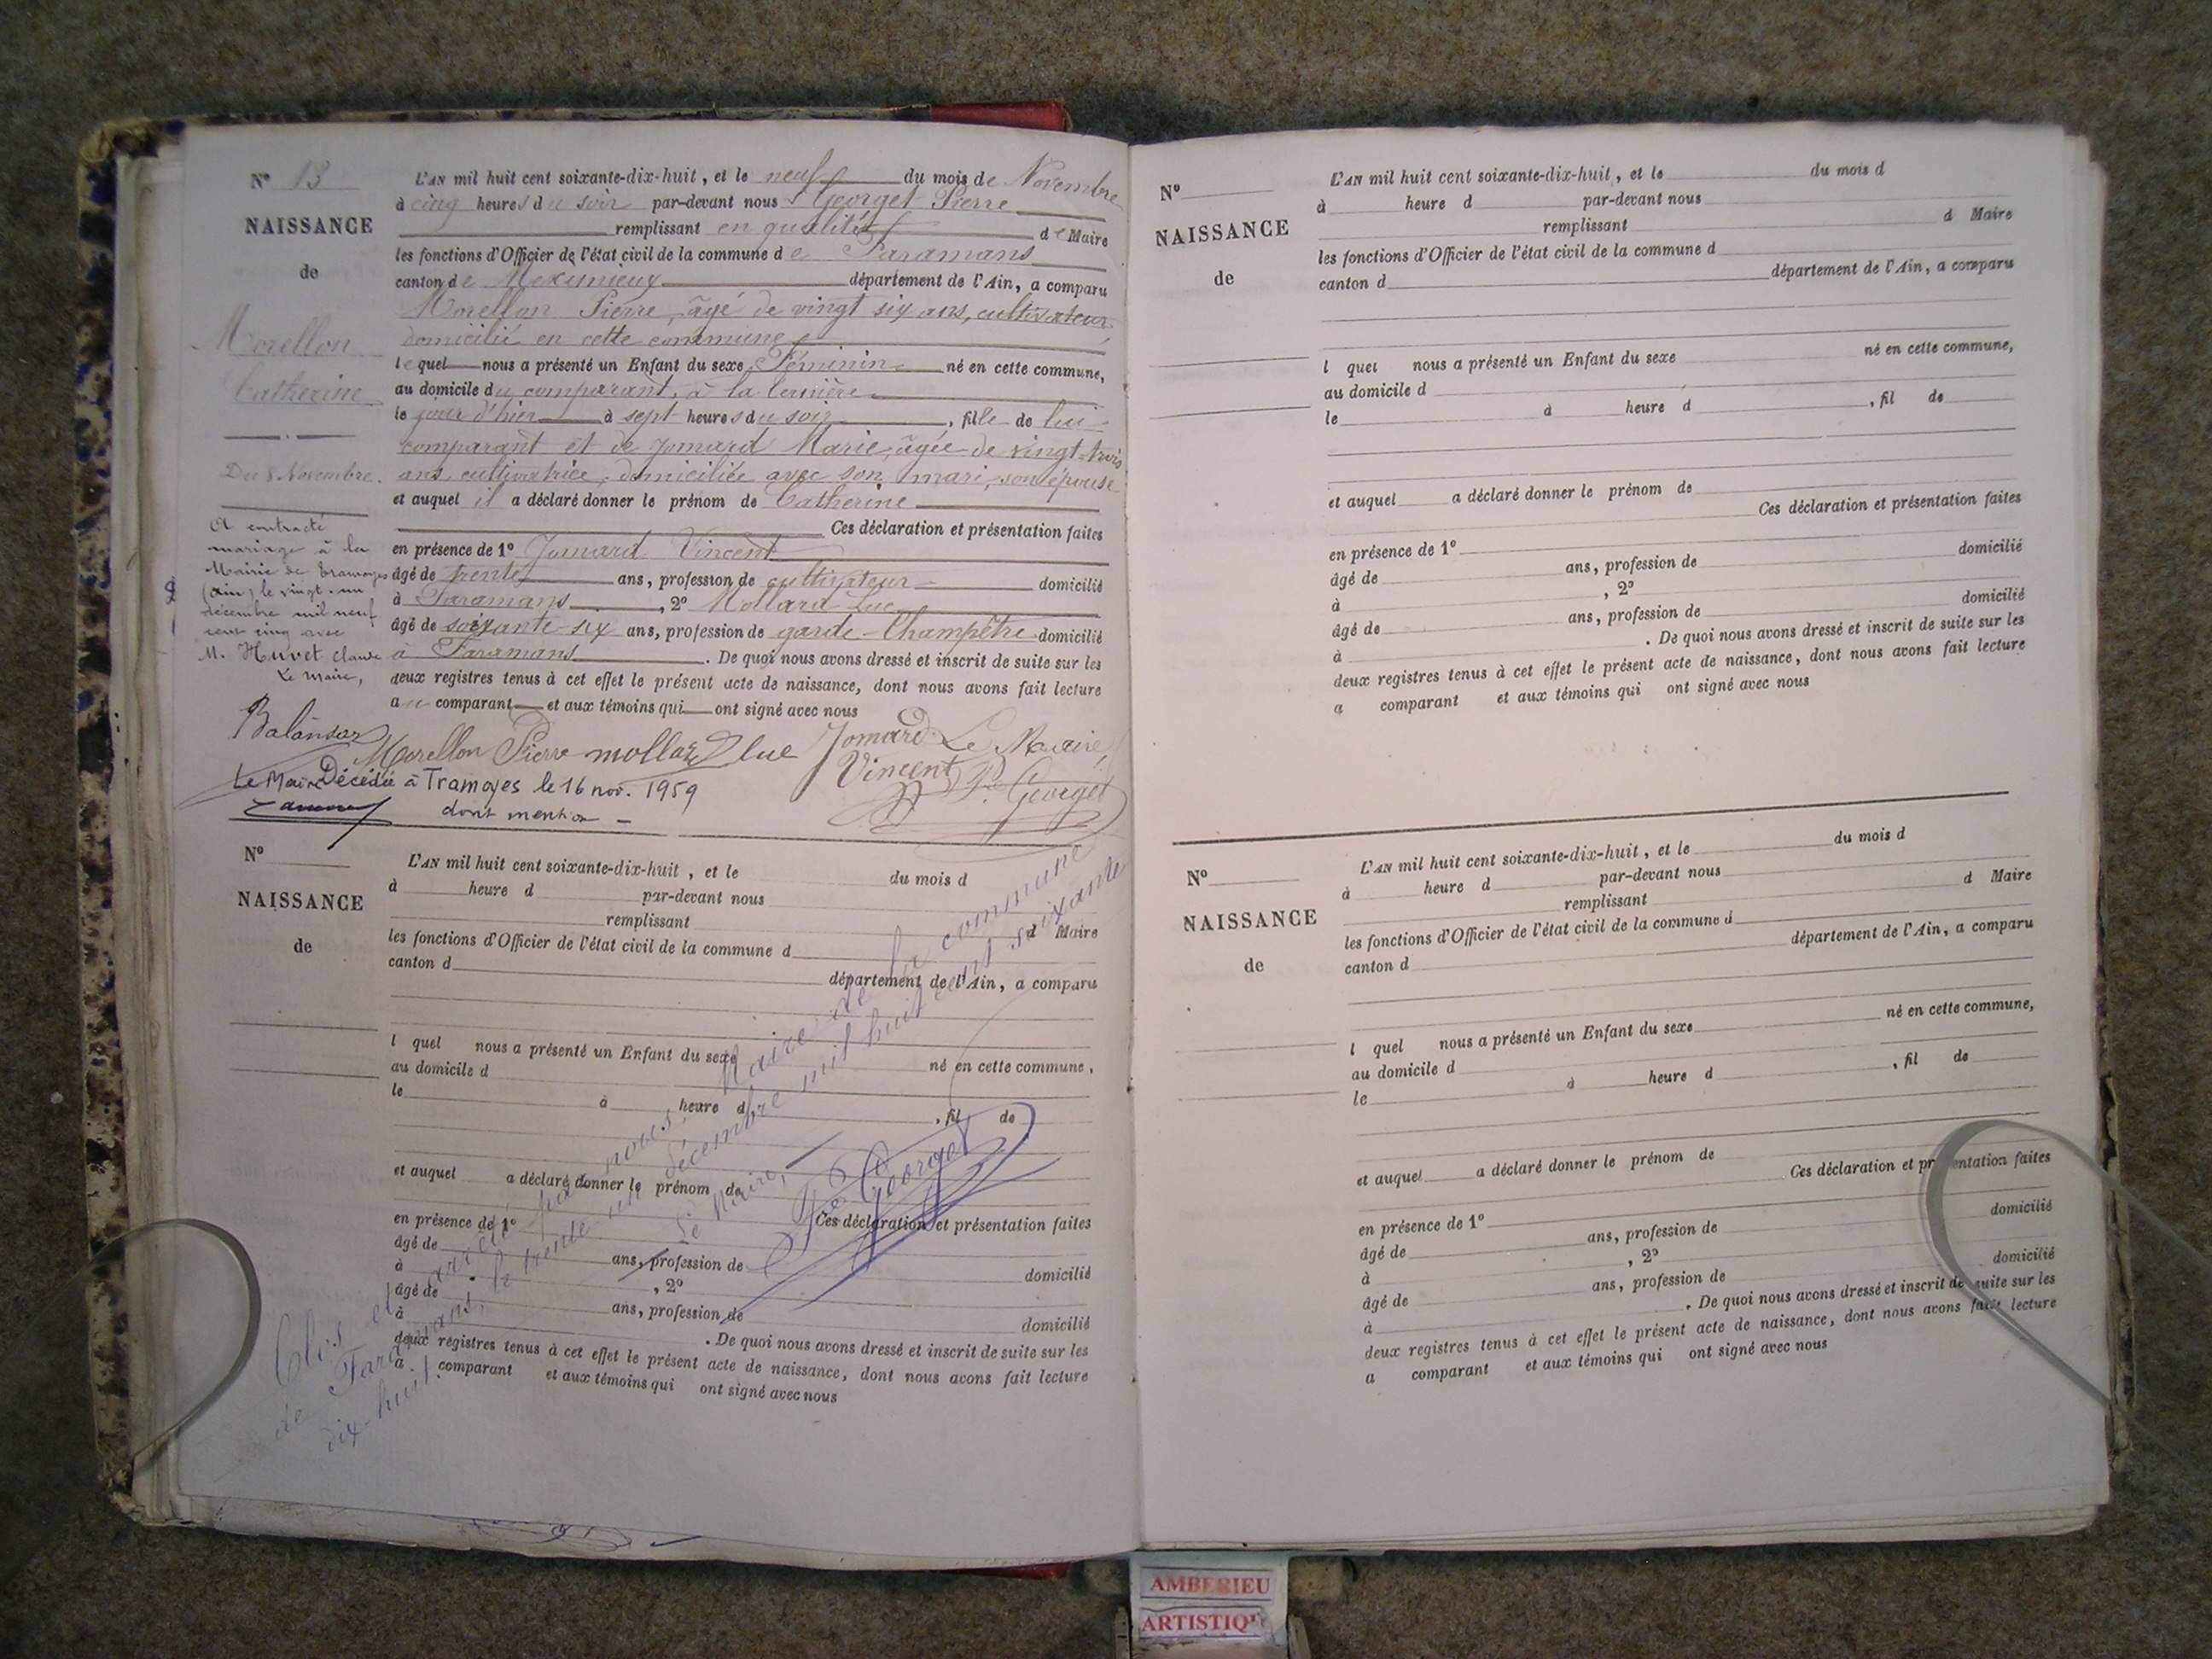 N° 13
NAISSANCE
de
Morellon
Catherine
Du 8 Novembre.
A contracté
mariage à la
Mairie de Tramoyes
(Ain) le vingt-un
décembre mil neuf
cent cinq avec
M. Huvet Claude
Le Maire,
L'AN mil huit cent soixante-dix-huit, et le neuf du mois de Novembre
à cinq heures du soir par-devant nous Georget Pierre
remplissant en qualité de Maire
les fonctions d'Officier de l'état civil de la commune de Faramans
canton de Meximieux département de l'Ain, a comparu
Morellon Pierre, âgé de vingt six ans, cultivateur
domicilié en cette commune
lequel nous a présenté un Enfant du sexe Féminin né en cette commune,
au domicile du comparant, à la
le jour d'hier à sept heures du soir, fille de lui
comparant et de Jomard Marie, âgée de vingt-trois
ans, cultivatrice, domiciliée avec son mari, son épouse
et auquel il a déclaré donner le prénom de Catherine
Ces déclaration et présentation faites
en présence de 1° Jomard Vincent
âgé de trente ans, profession de cultivateur domicilié
à Faramans, 2° Mollard Luc
âgé de soixante-six ans, profession de garde-Champêtre domicilié
à Faramans. De quoi nous avons dressé et inscrit de suite sur les
deux registres tenus à cet effet le présent acte de naissance, dont nous avons fait lecture
au comparant et aux témoins qui ont signé avec nous
Morellon Pierre mollard luc Jomard Vincent Le Maire, P. Georget
Le Maire Décédée à Tramoyes le 16 nov. 1959
dont mention
N°
NAISSANCE
de
L'AN mil huit cent soixante-dix-huit, et le du mois d
à heure d par-devant nous
remplissant d Maire
les fonctions d'Officier de l'état civil de la commune d
canton d département de l'Ain, a comparu
l quel nous a présenté un Enfant du sexe né en cette commune,
au domicile d
le à heure d, fil de
et auquel a déclaré donner le prénom de
Ces déclaration et présentation faites
en présence de 1°
âgé de ans, profession de domicilié
à, 2°
âgé de ans, profession de domicilié
à. De quoi nous avons dressé et inscrit de suite sur les
deux registres tenus à cet effet le présent acte de naissance, dont nous avons fait lecture
a comparant et aux témoins qui ont signé avec nous
Clos et arrêté par nous, Maire de la commune
de Faramans, le trente-un décembre mil huit cent soixante
dix-huit.
Le Maire,
Georget
N°
NAISSANCE
de
L'AN mil huit cent soixante-dix-huit, et le du mois d
à heure d par-devant nous
remplissant d Maire
les fonctions d'Officier de l'état civil de la commune d
canton d département de l'Ain, a comparu
l quel nous a présenté un Enfant du sexe né en cette commune,
au domicile d
le à heure d, fil de
et auquel a déclaré donner le prénom de
Ces déclaration et présentation faites
en présence de 1° domicilié
âgé de ans, profession de
à, 2° domicilié
âgé de ans, profession de
à. De quoi nous avons dressé et inscrit de suite sur les
deux registres tenus à cet effet le présent acte de naissance, dont nous avons fait lecture
a comparant et aux témoins qui ont signé avec nous
N°
NAISSANCE
de
L'AN mil huit cent soixante-dix-huit, et le du mois d
à heure d par-devant nous
remplissant d Maire
les fonctions d'Officier de l'état civil de la commune d
canton d département de l'Ain, a comparu
l quel nous a présenté un Enfant du sexe né en cette commune,
au domicile d
le à heure d, fil de
et auquel a déclaré donner le prénom de
Ces déclaration et présentation faites
en présence de 1° domicilié
âgé de ans, profession de
à, 2° domicilié
âgé de ans, profession de
à. De quoi nous avons dressé et inscrit de suite sur les
deux registres tenus à cet effet le présent acte de naissance, dont nous avons fait lecture
a comparant et aux témoins qui ont signé avec nous
AMBERIEU
ARTISTIQU